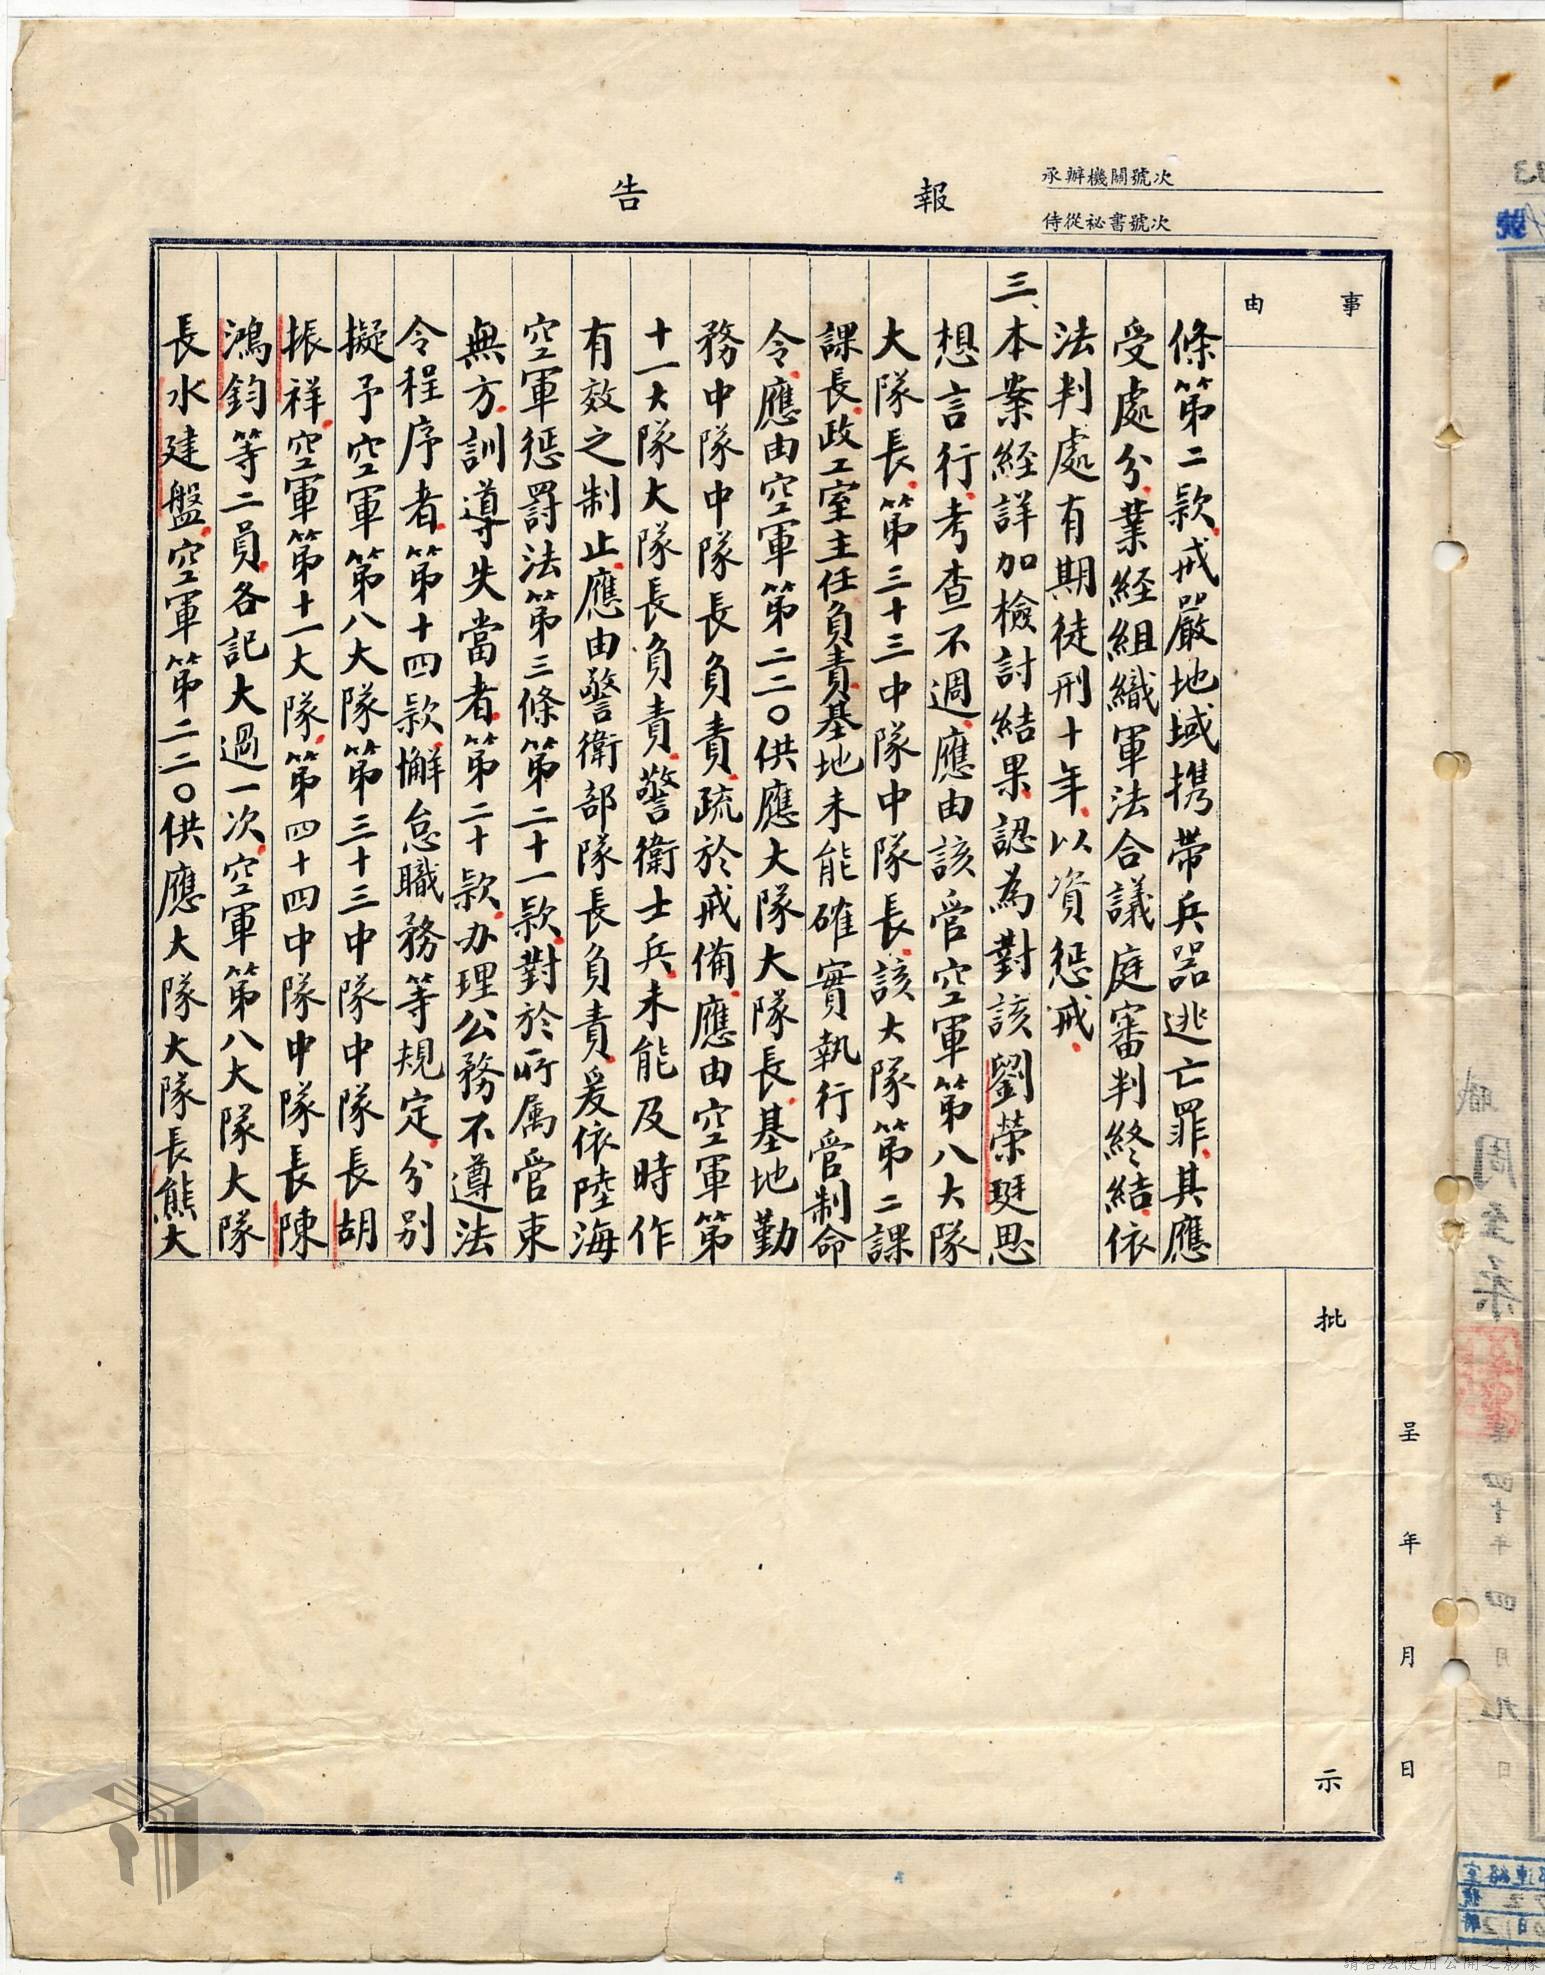 報告
承辦機關號次
侍從祕書號次
事由
條第二款戒嚴地域携帶兵器逃亡罪、其應
受處分、業經組織軍法合議庭審判終結、依
法判處有期徒刑十年、以資懲戒、
三、本案經詳加檢討結果、認為對該劉榮珽思
想言行、考查不週、應由該管空軍第八大隊
大隊長、第三十三中隊中隊長、該大隊第二課
課長、政工室主任負責、基地未能確實執行管制命
令、應由空軍第二二〇供應大隊大隊長、基地勤
務中隊中隊長負責、疏於戒備、應由空軍第
十一大隊大隊長負責、警衛士兵、未能及時作
有效之制止、應由警衛部隊長負責、爰依陸海
空軍懲罰法第三條第二十一款、對於所属管束
無方、訓導失當者、第二十款、办理公務不遵法
令程序者、第十四款、懈怠職務等規定、分別
擬予空軍第八大隊第三十三中隊中隊長胡
振祥、空軍第十一大隊、第四十四中隊中隊長陳
鴻鈞等二員、各記大過一次、空軍第八大隊大隊
長水建盤、空軍第二二〇供應大隊大隊長熊大
批示
呈 年 月 日
請合法使用公開之影像